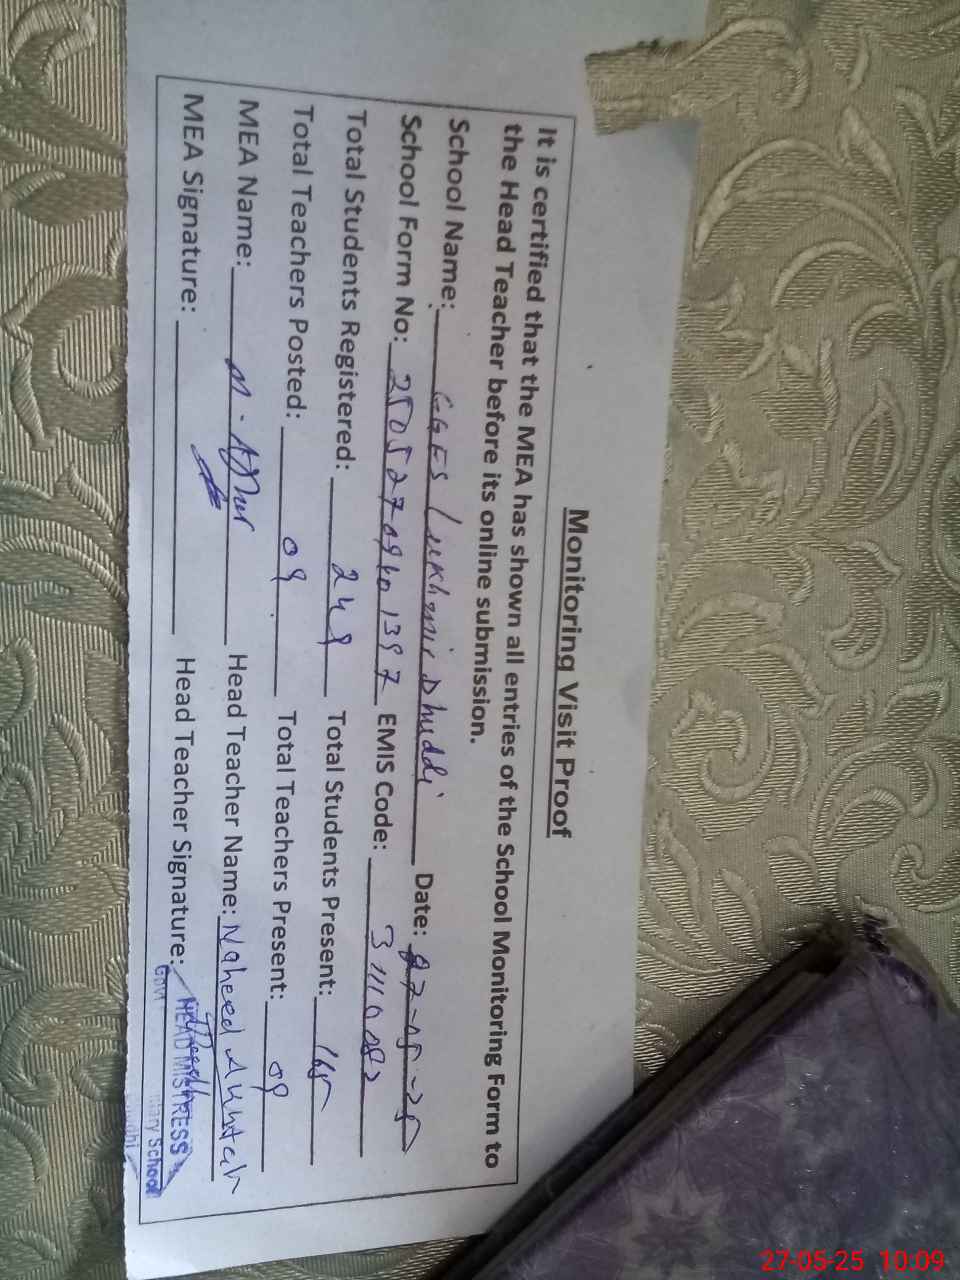 Monitoring Visit Proof
It is certified that the MEA has shown all entries of the School Monitoring Form to
the Head Teacher before its online submission.
School Name: GGES Lukhmir Dhuddi Date: 27-05-25
School Form No: EMIS Code:
Total Students Registered: 249 Total Students Present: 165
Total Teachers Posted: 09 Total Teachers Present: 09
MEA Name: Head Teacher Name: Naheed Akhtar
MEA Signature: Head Teacher Signature:
HEADMISTRESS
Govt School
27-05-25 10:09